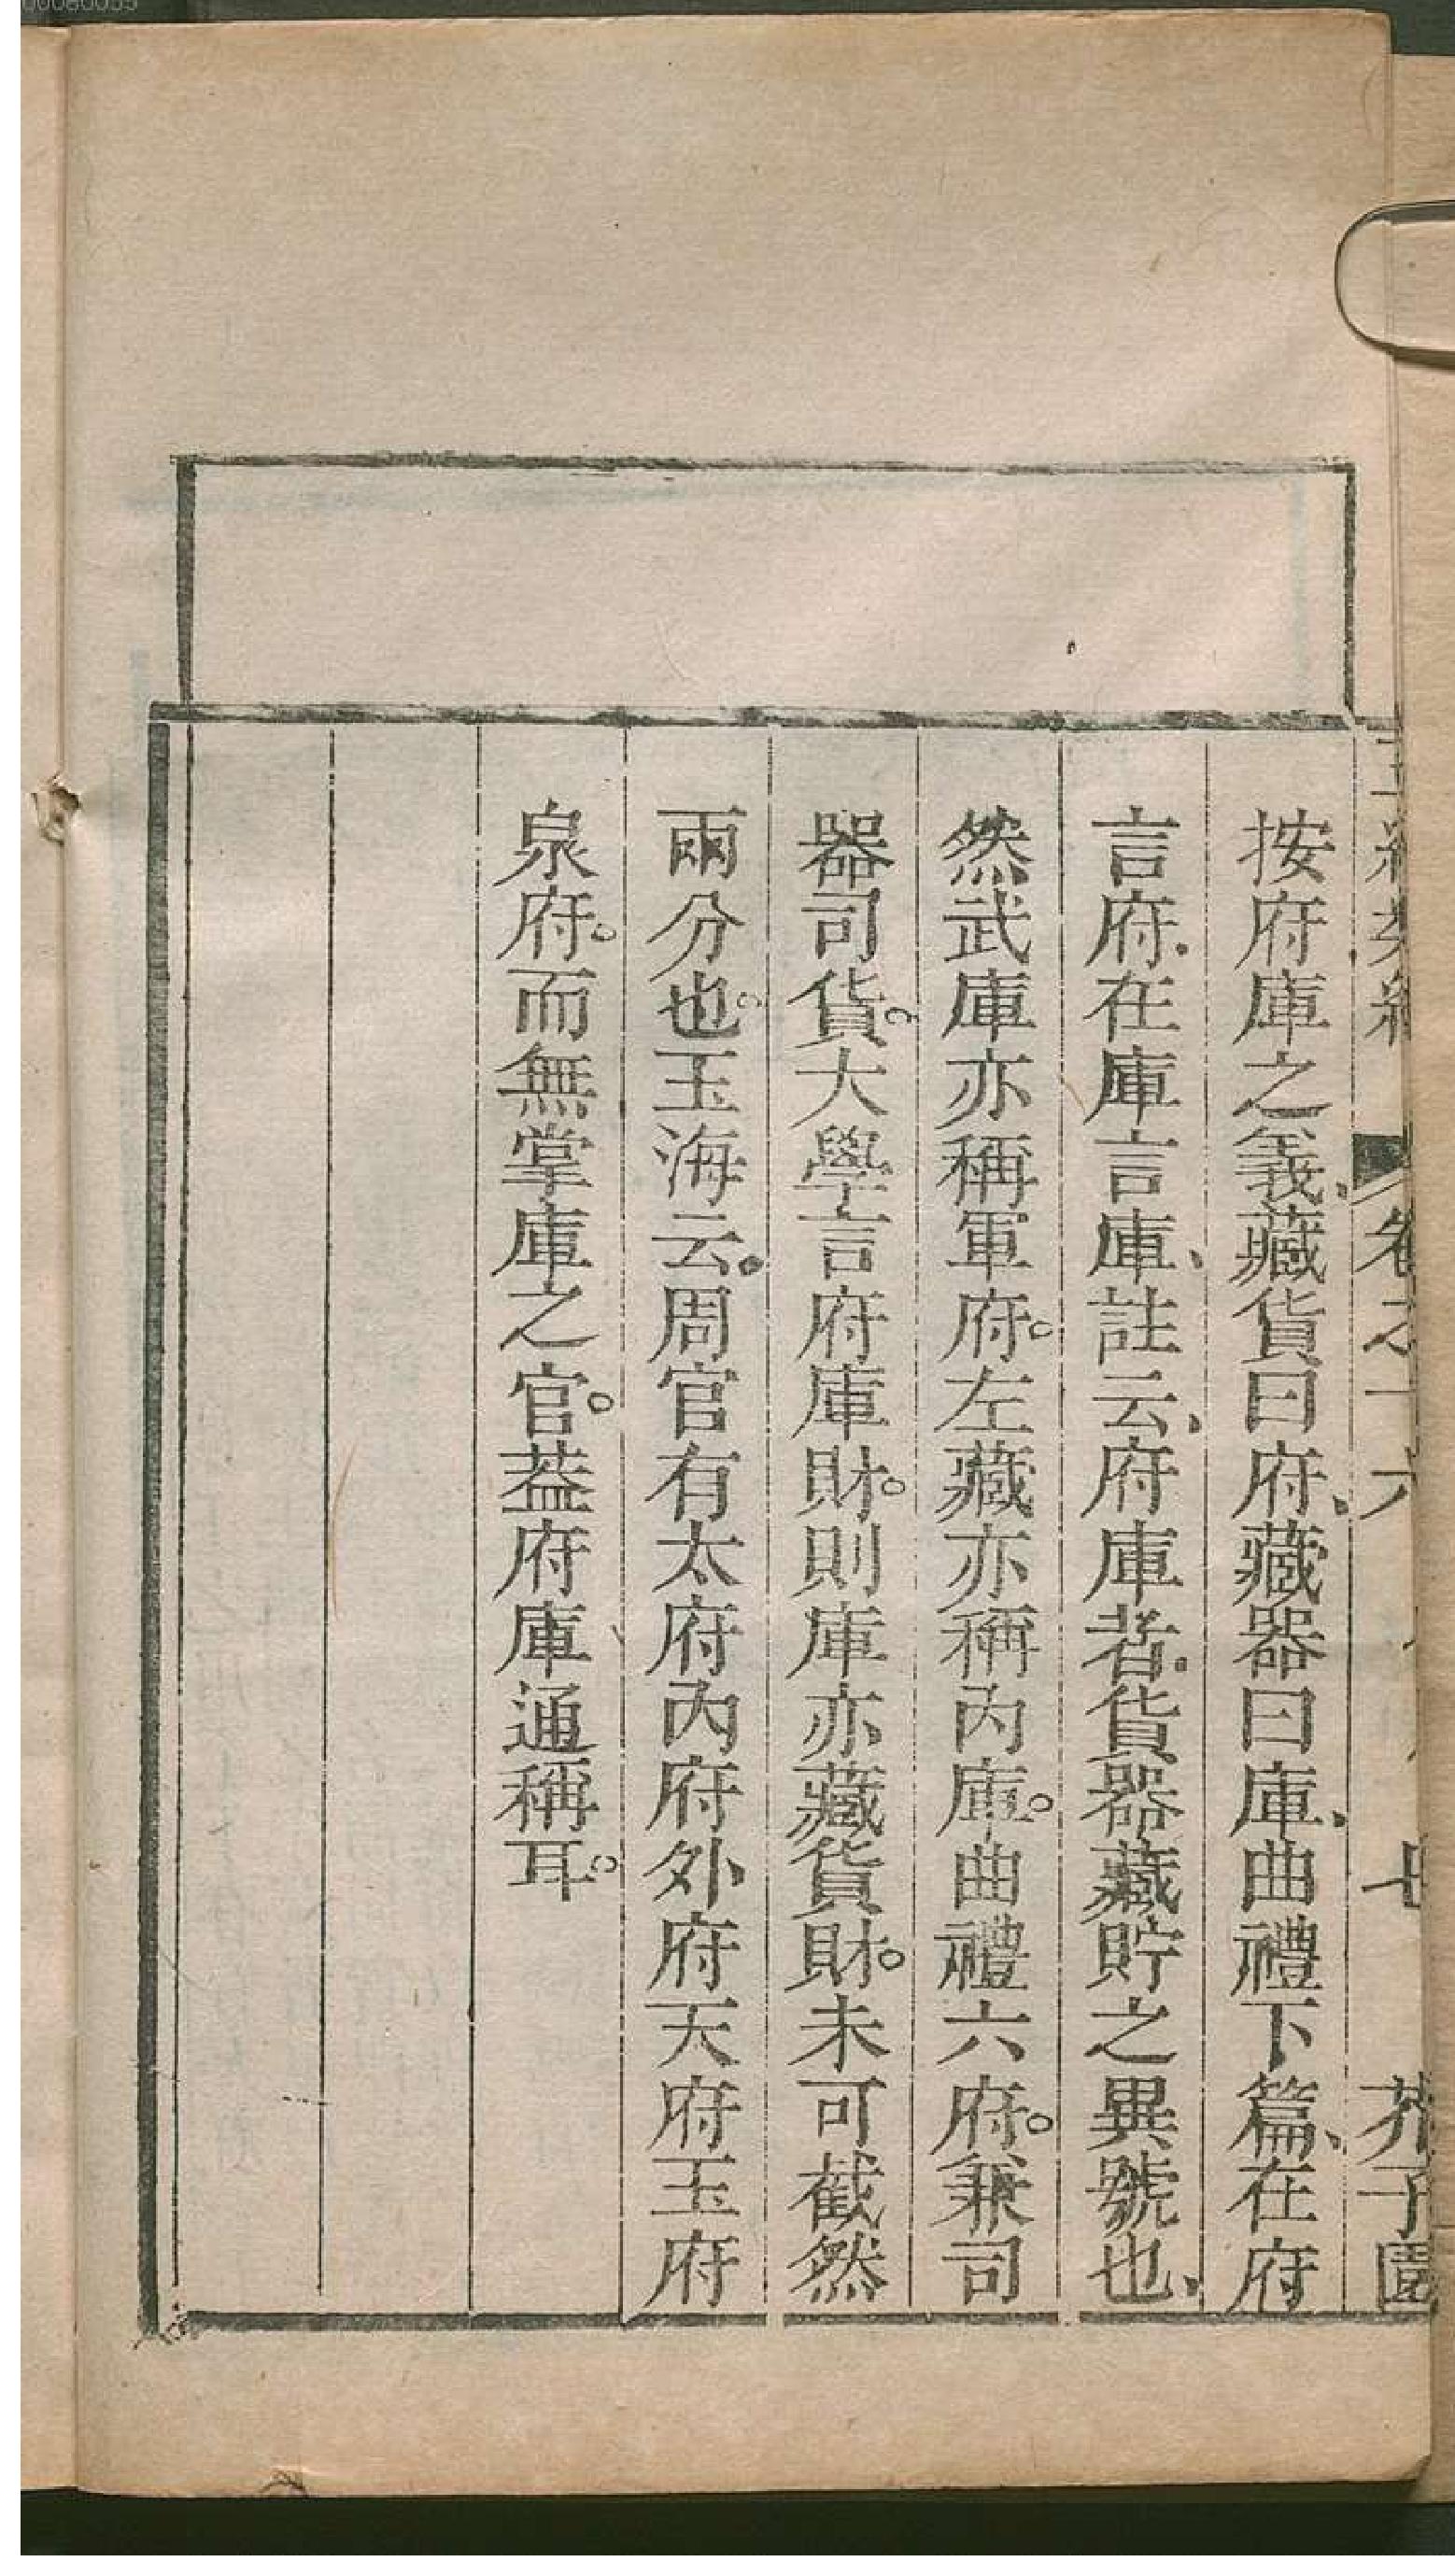 按府庫之義、藏貨曰府、藏器曰庫、曲禮下篇、在府
言府、在庫言庫、註云、府庫者、貨器藏貯之異號也、
然武庫亦稱軍府。左藏亦稱内庫。曲禮六府。兼司
器司貨。大學言府庫財。則庫亦藏貨財。未可截然
兩分也。玉海云、周官有太府内府外府天府玉府
泉府。而無掌庫之官。葢府庫通稱耳。
卷之十六
七
芥子園